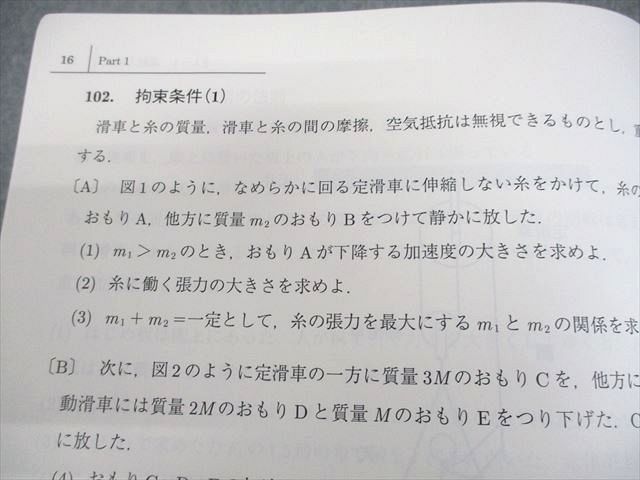 16 Part 1
102. 拘束条件(1)
滑車と糸の質量，滑車と糸の間の摩擦，空気抵抗は無視できるものとし，
する．
〔A〕 図1のように，なめらかに回る定滑車に伸縮しない糸をかけて，糸の
おもりA，他方に質量 m₂ のおもりBをつけて静かに放した．
(1) m₁＞m₂ のとき，おもりAが下降する加速度の大きさを求めよ．
(2) 糸に働く張力の大きさを求めよ．
(3) m₁＋m₂＝一定として，糸の張力を最大にする m₁ と m₂ の関係を求
〔B〕 次に，図2のように定滑車の一方に質量 3M のおもりCを，他方に
動滑車には質量 2M のおもりDと質量 M のおもりEをつり下げた．C
に放した．
(4)